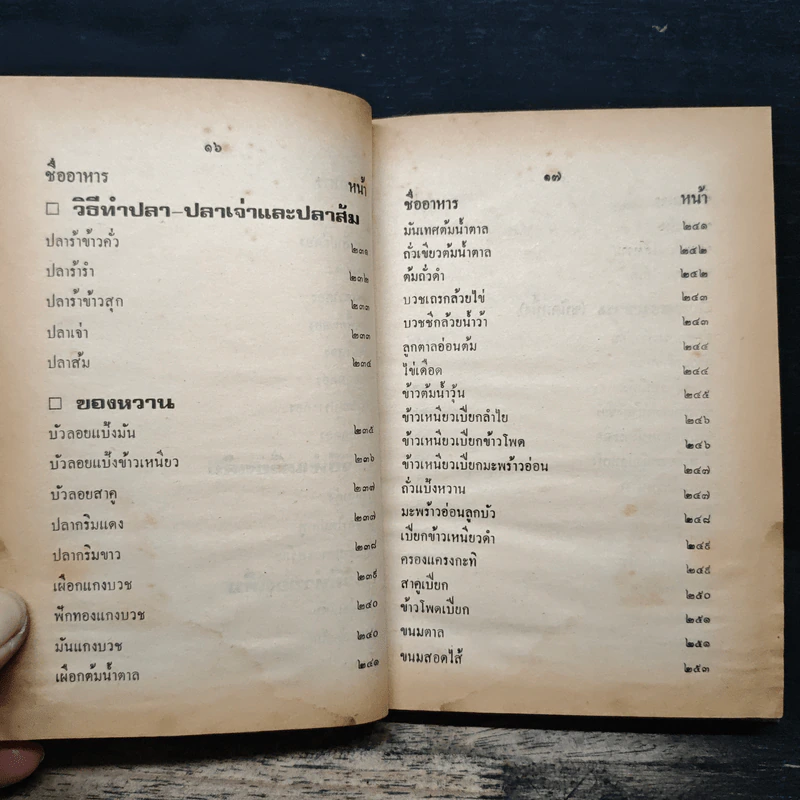 ๑๖
ชื่ออาหาร หน้า
□ วิธีทำปลา-ปลาเจ่าและปลาส้ม
ปลาร้าข้าวคั่ว ๒๓๑
ปลาร้ารำ ๒๓๒
ปลาร้าข้าวสุก ๒๓๓
ปลาเจ่า ๒๓๓
ปลาส้ม ๒๓๔
□ ของหวาน
บัวลอยแป้งมัน ๒๓๕
บัวลอยแป้งข้าวเหนียว ๒๓๖
บัวลอยสาคู ๒๓๗
ปลากริมแดง ๒๓๗
ปลากริมขาว ๒๓๘
เผือกแกงบวช ๒๓๙
ฟักทองแกงบวช ๒๔๐
มันแกงบวช ๒๔๐
เผือกต้มน้ำตาล ๒๔๑
๑๗
ชื่ออาหาร หน้า
มันเทศต้มน้ำตาล ๒๔๑
ถั่วเขียวต้มน้ำตาล ๒๔๒
ต้มถั่วดำ ๒๔๒
บวชเถรกล้วยไข่ ๒๔๓
บวชชีกล้วยน้ำว้า ๒๔๓
ลูกตาลอ่อนต้ม ๒๔๔
ไข่เดือด ๒๔๔
ข้าวต้มน้ำวุ้น ๒๔๕
ข้าวเหนียวเปียกลำไย ๒๔๖
ข้าวเหนียวเปียกข้าวโพด ๒๔๖
ข้าวเหนียวเปียกมะพร้าวอ่อน ๒๔๗
ถั่วแป้งหวาน ๒๔๗
มะพร้าวอ่อนลูกบัว ๒๔๘
เปียกข้าวเหนียวดำ ๒๔๙
ครองแครงกะทิ ๒๔๙
สาคูเปียก ๒๕๐
ข้าวโพดเปียก ๒๕๑
ขนมตาล ๒๕๑
ขนมสอดไส้ ๒๕๓